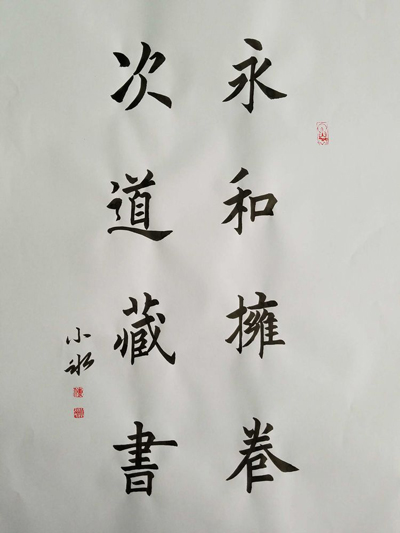 永和擁卷
次道藏書
小冰